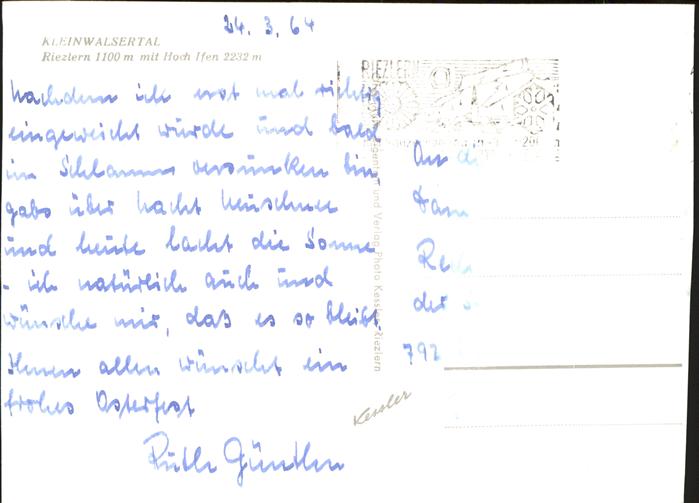 24.3.64
KLEINWALSERTAL
Riezlern 1100 m mit Hoch Ifen 2232 m
nachdem ich erst mal richtig
eingeweicht wurde und bald
im Schlamm versunken bin,
gabs über Nacht Neuschnee
und heute lacht die Sonne
- ich natürlich auch und
wünsche mir, daß es so bleibt.
Ihnen allen wünscht ein
frohes Osterfest
Ruth
RIEZLERN
und Verlag Photo Kessler Riezlern
Kessler
An di
Fam
der
792